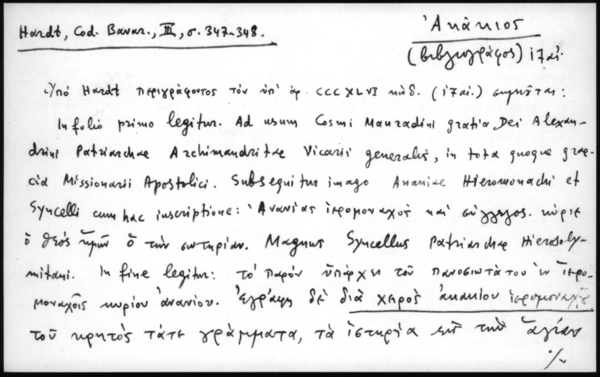 Hardt, Cod. Bavar., III, σ. 347-348.
Ἀκάκιος
(βιβλιογράφος) 17 αἰ.
Ὑπὸ Hardt περιγράφοντος τὸν ὑπ' ἀρ. CCCXLVI κώδ. (17 αἰ.) σημειοῦται:
In folio primo legitur. Ad usum Cosmi Mauradini gratia Dei Alexan-
drini Patriarchae Archimandritae Vicarii generalis, in tota quoque grae-
cia Missionarii Apostolici. Subsequitur imago Ananiae Hieromonachi et
Syncelli cum hac inscriptione: Ἀνανίας ἱερομοναχὸς καὶ σύγγελος. κύριε
ὁ θεὸς ἡμῶν ὁ τὴν σωτηρίαν. Magnus Syncellus Patriarchae Hierosoly-
mitani. In fine legitur: τὸ παρὸν ὑπάρχει τοῦ πανοσιωτάτου ἐν ἱερο-
μοναχοῖς κυρίου ἀνανίου. Ἐγράφη δὲ διὰ χειρὸς ἀκακίου ἱερομονάχου
τοῦ κρητὸς τάτε γράμματα, τὰ ἱστηρία εἰς τὴν ἁγίαν
·/~